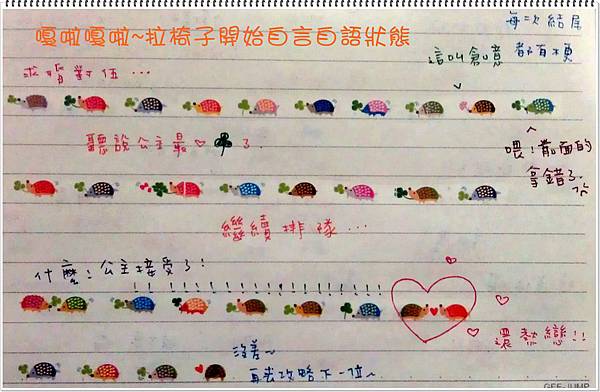 嘎啦嘎啦~拉椅子開始自言自語狀態
每次結尾
都有梗
這叫創意
求婚對伍…
聽說公主最♡♣了.
喂!前面的
拿錯了.
繼續排隊…
什麼!公主接受了!
!!!!!!!!!!!!!!!!!!!
還熱戀!!
沒差~
再去攻略下一位~
GEE-JUMP